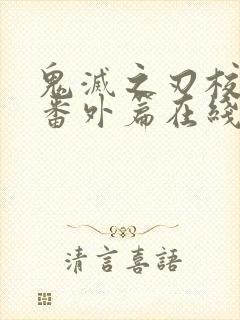 鬼滅之刃校
番外篇在綫
清言喜語